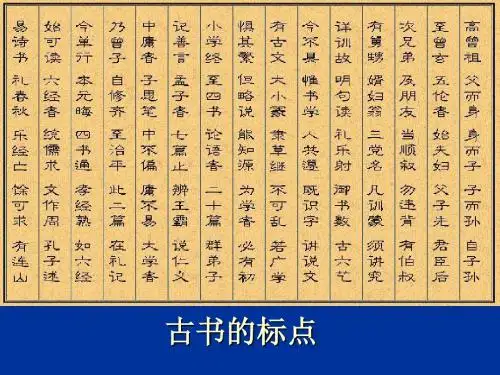 高曾祖 父而身 身而子 子而孙 自子孙
至曾玄 五伦者 始夫妇 父子先 君臣后
次兄弟 及朋友 当顺叙 勿违背 有伯叔
有舅甥 婿妇翁 三党名 凡训蒙 须讲究
详训故 明句读 礼乐射 御书数 古六艺
今不具 惟书学 人共遵 既识字 讲说文
有古文 大小篆 隶草继 不可乱 若广学
惧其繁 但略说 能知源 为学者 必有初
小学终 至四书 论语者 二十篇 群弟子
记善言 孟子者 七篇止 辨王霸 说仁义
中庸者 子思笔 中不偏 庸不易 大学者
乃曾子 自修齐 至治平 此二篇 在礼记
今单行 本元晦 四书通 孝经熟 如六经
始可读 六经者 统儒求 文作周 孔子述
易诗书 礼春秋 乐经亡 馀可求 有连山
古书的标点